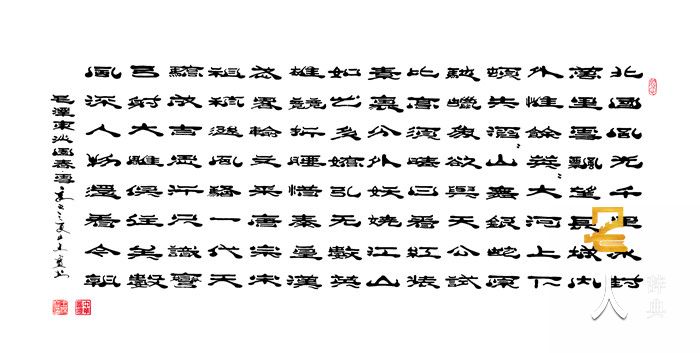 北國風光千里冰封
萬里雪飄望長城内
外惟餘莽〻大河上下
頓失滔〻山舞銀蛇原
馳蠟象欲與天公試
比高須晴日看紅裝
素裹分外妖嬈江山
如此多嬌引无數英
雄競折腰惜秦皇漢
武略輸文采唐宗宋
祖稍遜風騷一代天
驕成吉思汗只識彎
弓射大雕俱往矣數
風流人物還看今朝
毛澤東沁園春雪
人
辞典